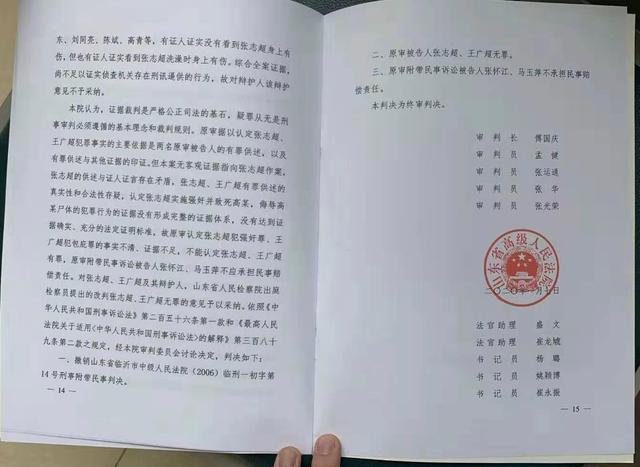 东、刘同亮、陈斌、高青等，有证人证实没有看到张志超身上有
伤，但也有证人证实看到张志超洗澡时身上有伤。综合全案证据，
尚不足以证实侦查机关存在刑讯逼供的行为，故对辩护人该辩护
意见不予采纳。
本院认为，证据裁判是严格公正司法的基石，疑罪从无是刑
事审判必须遵循的基本理念和裁判规则。原审据以认定张志超、
王广超犯罪事实的主要依据是两名原审被告人的有罪供述，以及
有罪供述与其他证据的印证。但本案无客观证据指向张志超作案，
张志超的供述与证人证言存在矛盾，张志超、王广超有罪供述的
真实性和合法性存疑，认定张志超实施强奸并致死高某，侮辱高
某尸体的犯罪行为的证据没有形成完整的证据体系，没有达到证
据确实、充分的法定证明标准，故原审认定张志超犯强奸罪、王
广超犯包庇罪的事实不清、证据不足，不能认定张志超、王广超
有罪，原审附带民事诉讼被告人张怀江、马玉萍不应承担民事赔
偿责任。对张志超、王广超及其辩护人，山东省人民检察院出庭
检察员提出的改判张志超、王广超无罪的意见予以采纳。依照《中
华人民共和国刑事诉讼法》第二百五十六条第一款和《最高人民
法院关于适用〈中华人民共和国刑事诉讼法〉的解释》第三百八十
九条第二款之规定，经本院审判委员会讨论决定，判决如下：
一、撤销山东省临沂市中级人民法院（2006）临刑一初字第
14号刑事附带民事判决。
— 14 —
二、原审被告人张志超、王广超无罪。
三、原审附带民事诉讼被告人张怀江、马玉萍不承担民事赔
偿责任。
本判决为终审判决。
审 判 长 傅国庆
审 判 员 孟 健
审 判 员 张运通
审 判 员 张 华
审 判 员 张光荣
山东省高级人民法院
二〇二〇年一月 日
法官助理 盛 文
法官助理 崔龙虓
书 记 员 杨 璐
书 记 员 姚颖博
书 记 员 崔永振
— 15 —